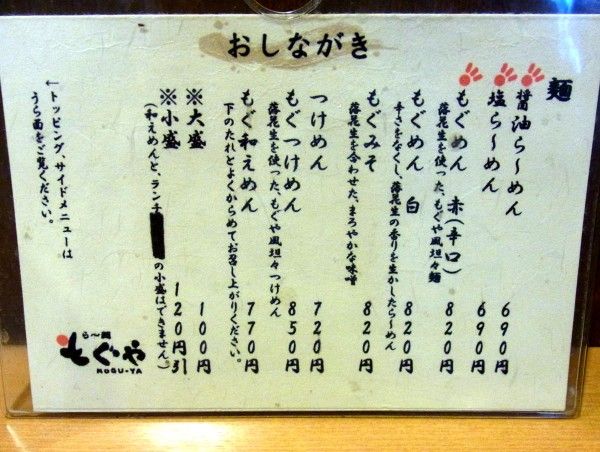 おしながき
麺
醤油ら〜めん 690円
塩ら〜めん 690円
もぐめん 赤(辛口) 820円
落花生を使った、もぐや風坦々麺
もぐめん 白 820円
辛さをなくし、落花生の香りを生かしたら〜めん
もぐみそ 820円
落花生を合わせた、まろやかな味噌
つけめん 720円
もぐつけめん 850円
落花生を使った、もぐや風坦々つけめん
もぐ和えめん 770円
下のたれとよくからめてお召し上がりください。
※大盛 100円
※小盛 120円引
(和えめんと、ランチ の小盛はできません。)
←トッピング、サイドメニューは
うら面をご覧ください。
ら〜麺
もぐや
MOGU-YA